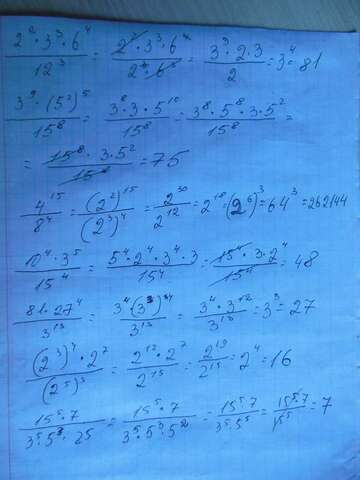 2² · 3³ · 6⁴ / 12³ = 2² · 3³ · 6⁴ / 2³ · 6³ = 3³ · 2 · 3 / 2 = 3⁴ = 81
3⁹ · (5²)⁵ / 15⁸ = 3⁸ · 3 · 5¹⁰ / 15⁸ = 3⁸ · 5⁸ · 3 · 5² / 15⁸ =
= 15⁸ · 3 · 5² / 15⁸ = 75
4¹⁵ / 8⁴ = (2²)¹⁵ / (2³)⁴ = 2³⁰ / 2¹² = 2¹⁸ = (2⁶)³ = 64³ = 262144
10⁴ · 3⁵ / 15⁴ = 5⁴ · 2⁴ · 3⁴ · 3 / 15⁴ = 15⁴ · 3 · 2⁴ / 15⁴ = 48
81 · 27⁴ / 3¹³ = 3⁴ · (3³)⁴ / 3¹³ = 3⁴ · 3¹² / 3¹³ = 3³ = 27
(2³)⁴ · 2⁷ / (2⁵)³ = 2¹² · 2⁷ / 2¹⁵ = 2¹⁹ / 2¹⁵ = 2⁴ = 16
15⁵ · 7 / 3⁵ · 5³ · 25 = 15⁵ · 7 / 3⁵ · 5³ · 5² = 15⁵ · 7 / 3⁵ · 5⁵ = 15⁵ · 7 / 15⁵ = 7